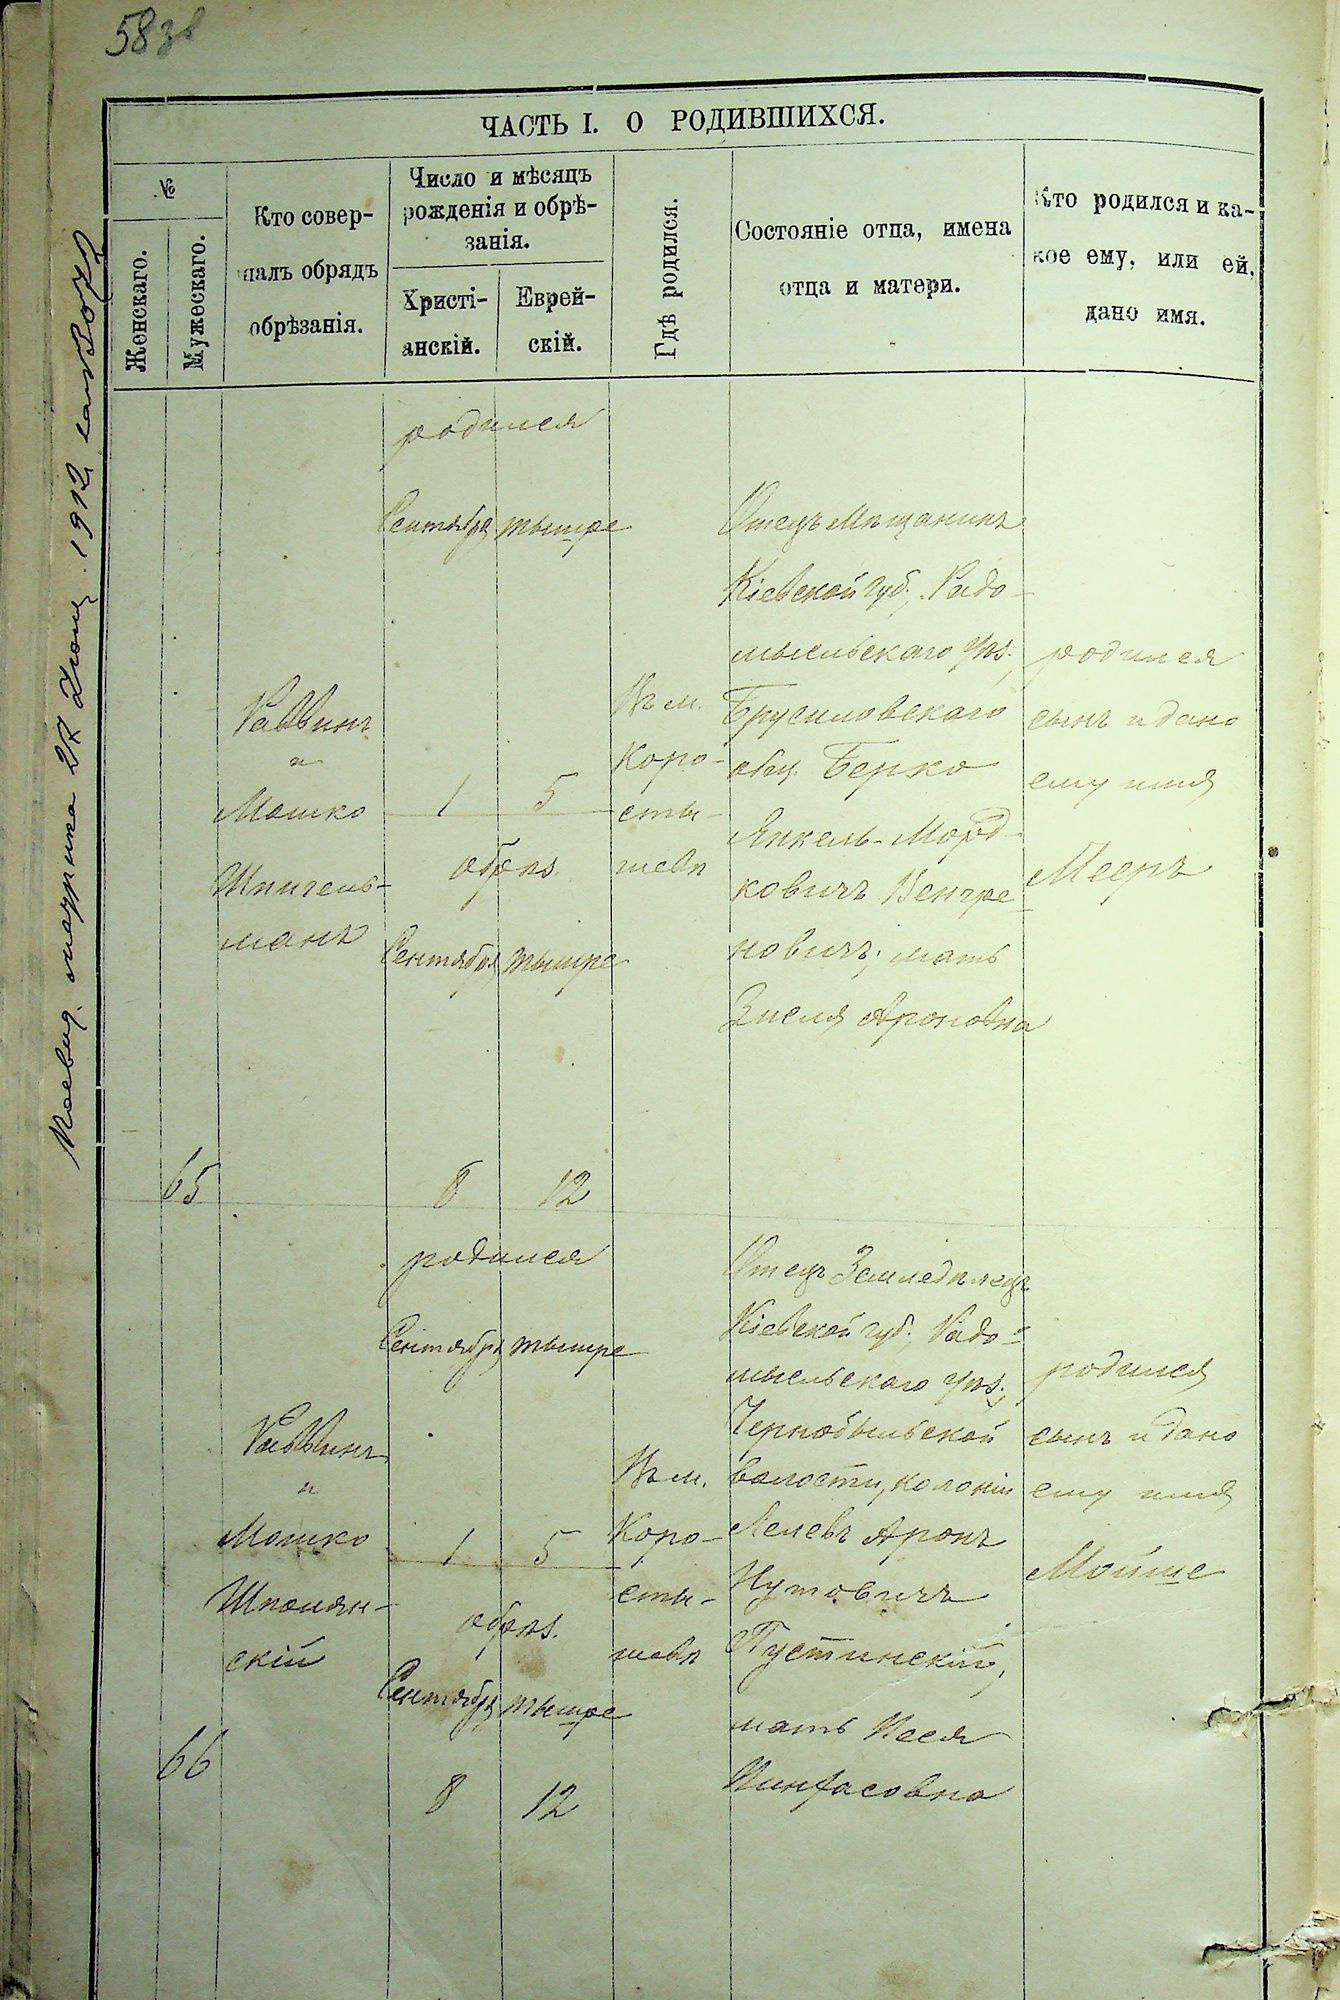 58 зв
ЧАСТЬ I. О РОДИВШИХСЯ.
№
Женскаго.
Мужескаго.
Кто совер-
шалъ обрядъ
обрѣзанія.
Число и мѣсяцъ
рожденія и обрѣ-
занія.
Христі-
анскій.
Еврей-
скій.
Гдѣ родился.
Состояніе отца, имена
отца и матери.
Кто родился и ка-
кое ему, или ей,
дано имя.
65
Раввинъ
и
Мошко
Шпигель-
манъ
родился
Сентября тышре
1 5
обрѣз.
Сентября тышре
8 12
Въ м.
Коро-
сты-
шевѣ
Отецъ Мѣщанинъ
Кіевской губ., Радо-
мысльскаго уѣз.
Брусиловскаго
общ. Берко
Янкель-Морд-
ковичъ Венгре-
новичъ; мать
Зиселя Ароновна
родился
сынъ и дано
ему имя
Мееръ
66
Раввинъ
и
Мошко
Шполян-
скій
родился
Сентября тышре
1 5
обрѣз.
Сентября тышре
8 12
Въ м.
Коро-
сты-
шевѣ
Отецъ Земледѣлецъ
Кіевской губ., Радо-
мысльскаго уѣз.,
Чернобыльской
волости, колоніи
Аронъ
Нутовичъ
Пустинскій,
мать Песя
Пинхасовна
родился
сынъ и дано
ему имя
Мойше
метрика 27 Іюня 1912